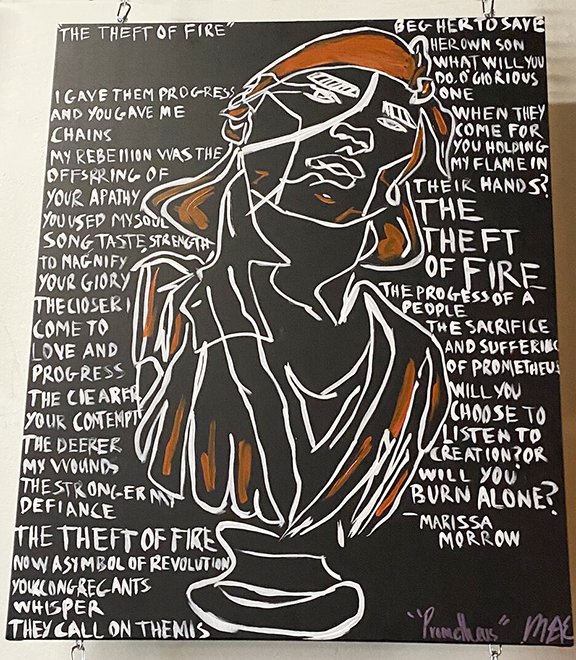 "THE THEFT OF FIRE"
I GAVE THEM PROGRESS
AND YOU GAVE ME
CHAINS
MY REBELLION WAS THE
OFFSPRING OF
YOUR APATHY
YOU USED MY SOUL
SONG TASTE STRENGTH
TO MAGNIFY
YOUR GLORY
THE CLOSER I
COME TO
LOVE AND
PROGRESS
THE CLEARER
YOUR CONTEMPT
THE DEEPER
MY WOUNDS
THE STRONGER MY
DEFIANCE
THE THEFT OF FIRE
NOW A SYMBOL OF REVOLUTION
YOUR CONGREGANTS
WHISPER
THEY CALL ON THEMIS
BEG HER TO SAVE
HER OWN SON
WHAT WILL YOU
DO, O' GLORIOUS
ONE
WHEN THEY
COME FOR
YOU HOLDING
MY FLAME IN
THEIR HANDS?
THE
THEFT
OF FIRE
THE PROGESS OF A
PEOPLE
THE SACRIFICE
AND SUFFERING
OF PROMETHEUS
WILL YOU
CHOOSE TO
LISTEN TO
CREATION? OR
WILL YOU
BURN ALONE?
-MARISSA
MORROW
"Prometheus" MAE